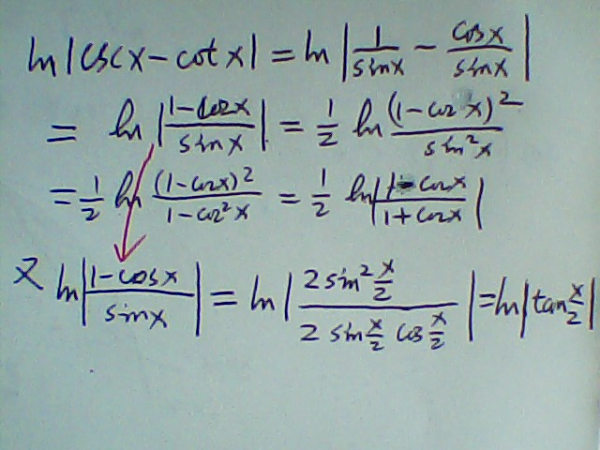 ln|cscx-cotx| = ln|1/sinx - cosx/sinx|
= ln|(1-cosx)/sinx| = 1/2 ln (1-cosx)²/sin²x
= 1/2 ln (1-cosx)²/(1-cos²x) = 1/2 ln|(1-cosx)/(1+cosx)|
又 ln|(1-cosx)/sinx| = ln|(2sin²x/2)/(2sinx/2 cosx/2)| = ln|tanx/2|